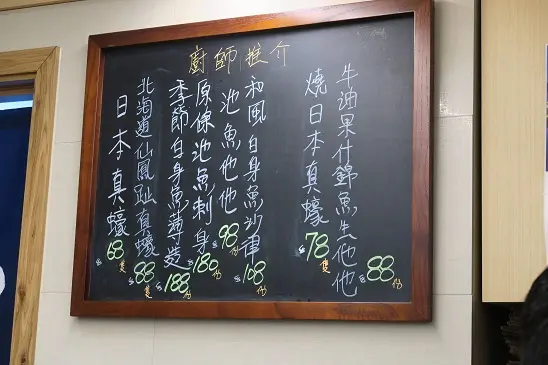 廚師推介
牛油果什錦魚生他他 $88份
燒日本真蠔 $78隻
和風白身魚沙律 $108份
池魚他他 $98份
原條池魚刺身 $180份
季節白身魚薄造 $188份
北海道仙鳳趾真蠔 $88隻
日本真蠔 $68隻